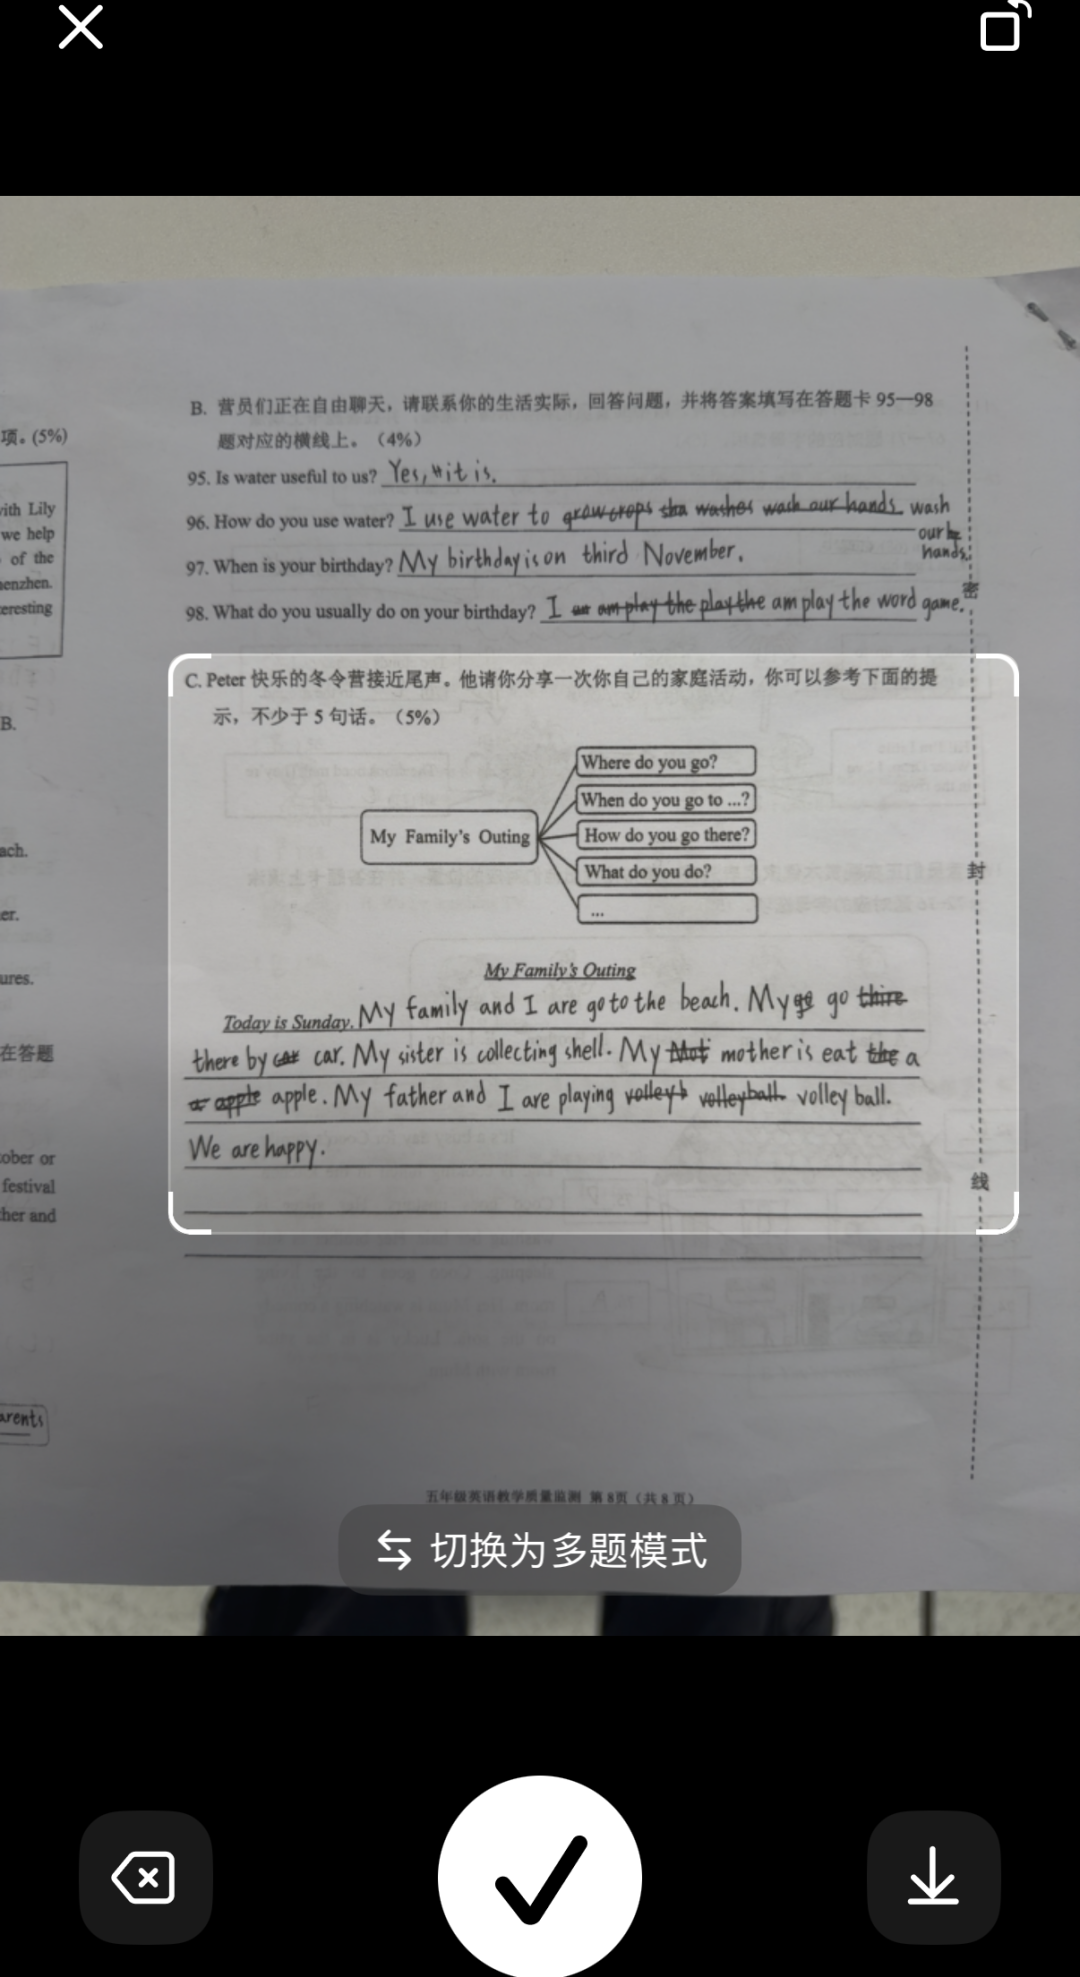 项。(5%)
with Lily
we help
of the
henzhen.
eresting
B.
ach.
er.
ures.
在答题
tober or
festival
ther and
arents
B. 营员们正在自由聊天，请联系你的生活实际，回答问题，并将答案填写在答题卡 95—98
题对应的横线上。（4%）
95. Is water useful to us? Yes, it is.
96. How do you use water? I use water to grow crops sha washes wash our hands wash
our
hands.
97. When is your birthday? My birthday is on third November.
98. What do you usually do on your birthday? I am play the play the am play the word game.
密
C. Peter 快乐的冬令营接近尾声。他请你分享一次你自己的家庭活动，你可以参考下面的提
示，不少于 5 句话。（5%）
Where do you go?
When do you go to ...?
My Family's Outing
How do you go there?
What do you do?
...
封
My Family's Outing
Today is Sunday. My family and I are go to the beach. My go go thire
there by car car. My sister is collecting shell. My Mot mother is eat the a
a apple apple. My father and I are playing volley b volleyball volley ball.
We are happy.
线
五年级英语教学质量监测 第 8页（共 8 页）
切换为多题模式